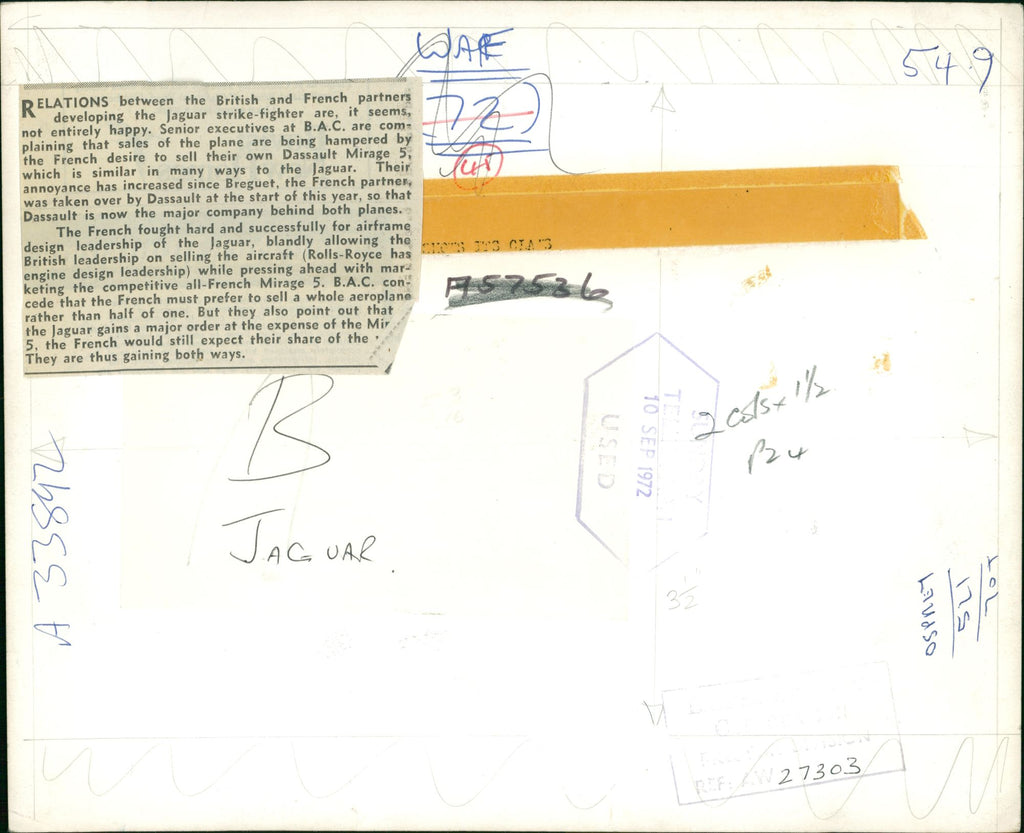 WAF
549
(72)
41
RELATIONS between the British and French partners
developing the Jaguar strike-fighter are, it seems,
not entirely happy. Senior executives at B.A.C. are com-
plaining that sales of the plane are being hampered by
the French desire to sell their own Dassault Mirage 5,
which is similar in many ways to the Jaguar. Their
annoyance has increased since Breguet, the French partner,
was taken over by Dassault at the start of this year, so that
Dassault is now the major company behind both planes.
The French fought hard and successfully for airframe
design leadership of the Jaguar, blandly allowing the
British leadership on selling the aircraft (Rolls-Royce has
engine design leadership) while pressing ahead with mar-
keting the competitive all-French Mirage 5. B.A.C. con-
cede that the French must prefer to sell a whole aeroplane
rather than half of one. But they also point out that
the Jaguar gains a major order at the expense of the Mir
5, the French would still expect their share of the
They are thus gaining both ways.
ITS CIA'S
A57536
B
JAGUAR.
A 33892
10 SEP 1972
USED
2 cols x 1 1/2
P24
3 1/2
REF:
27303